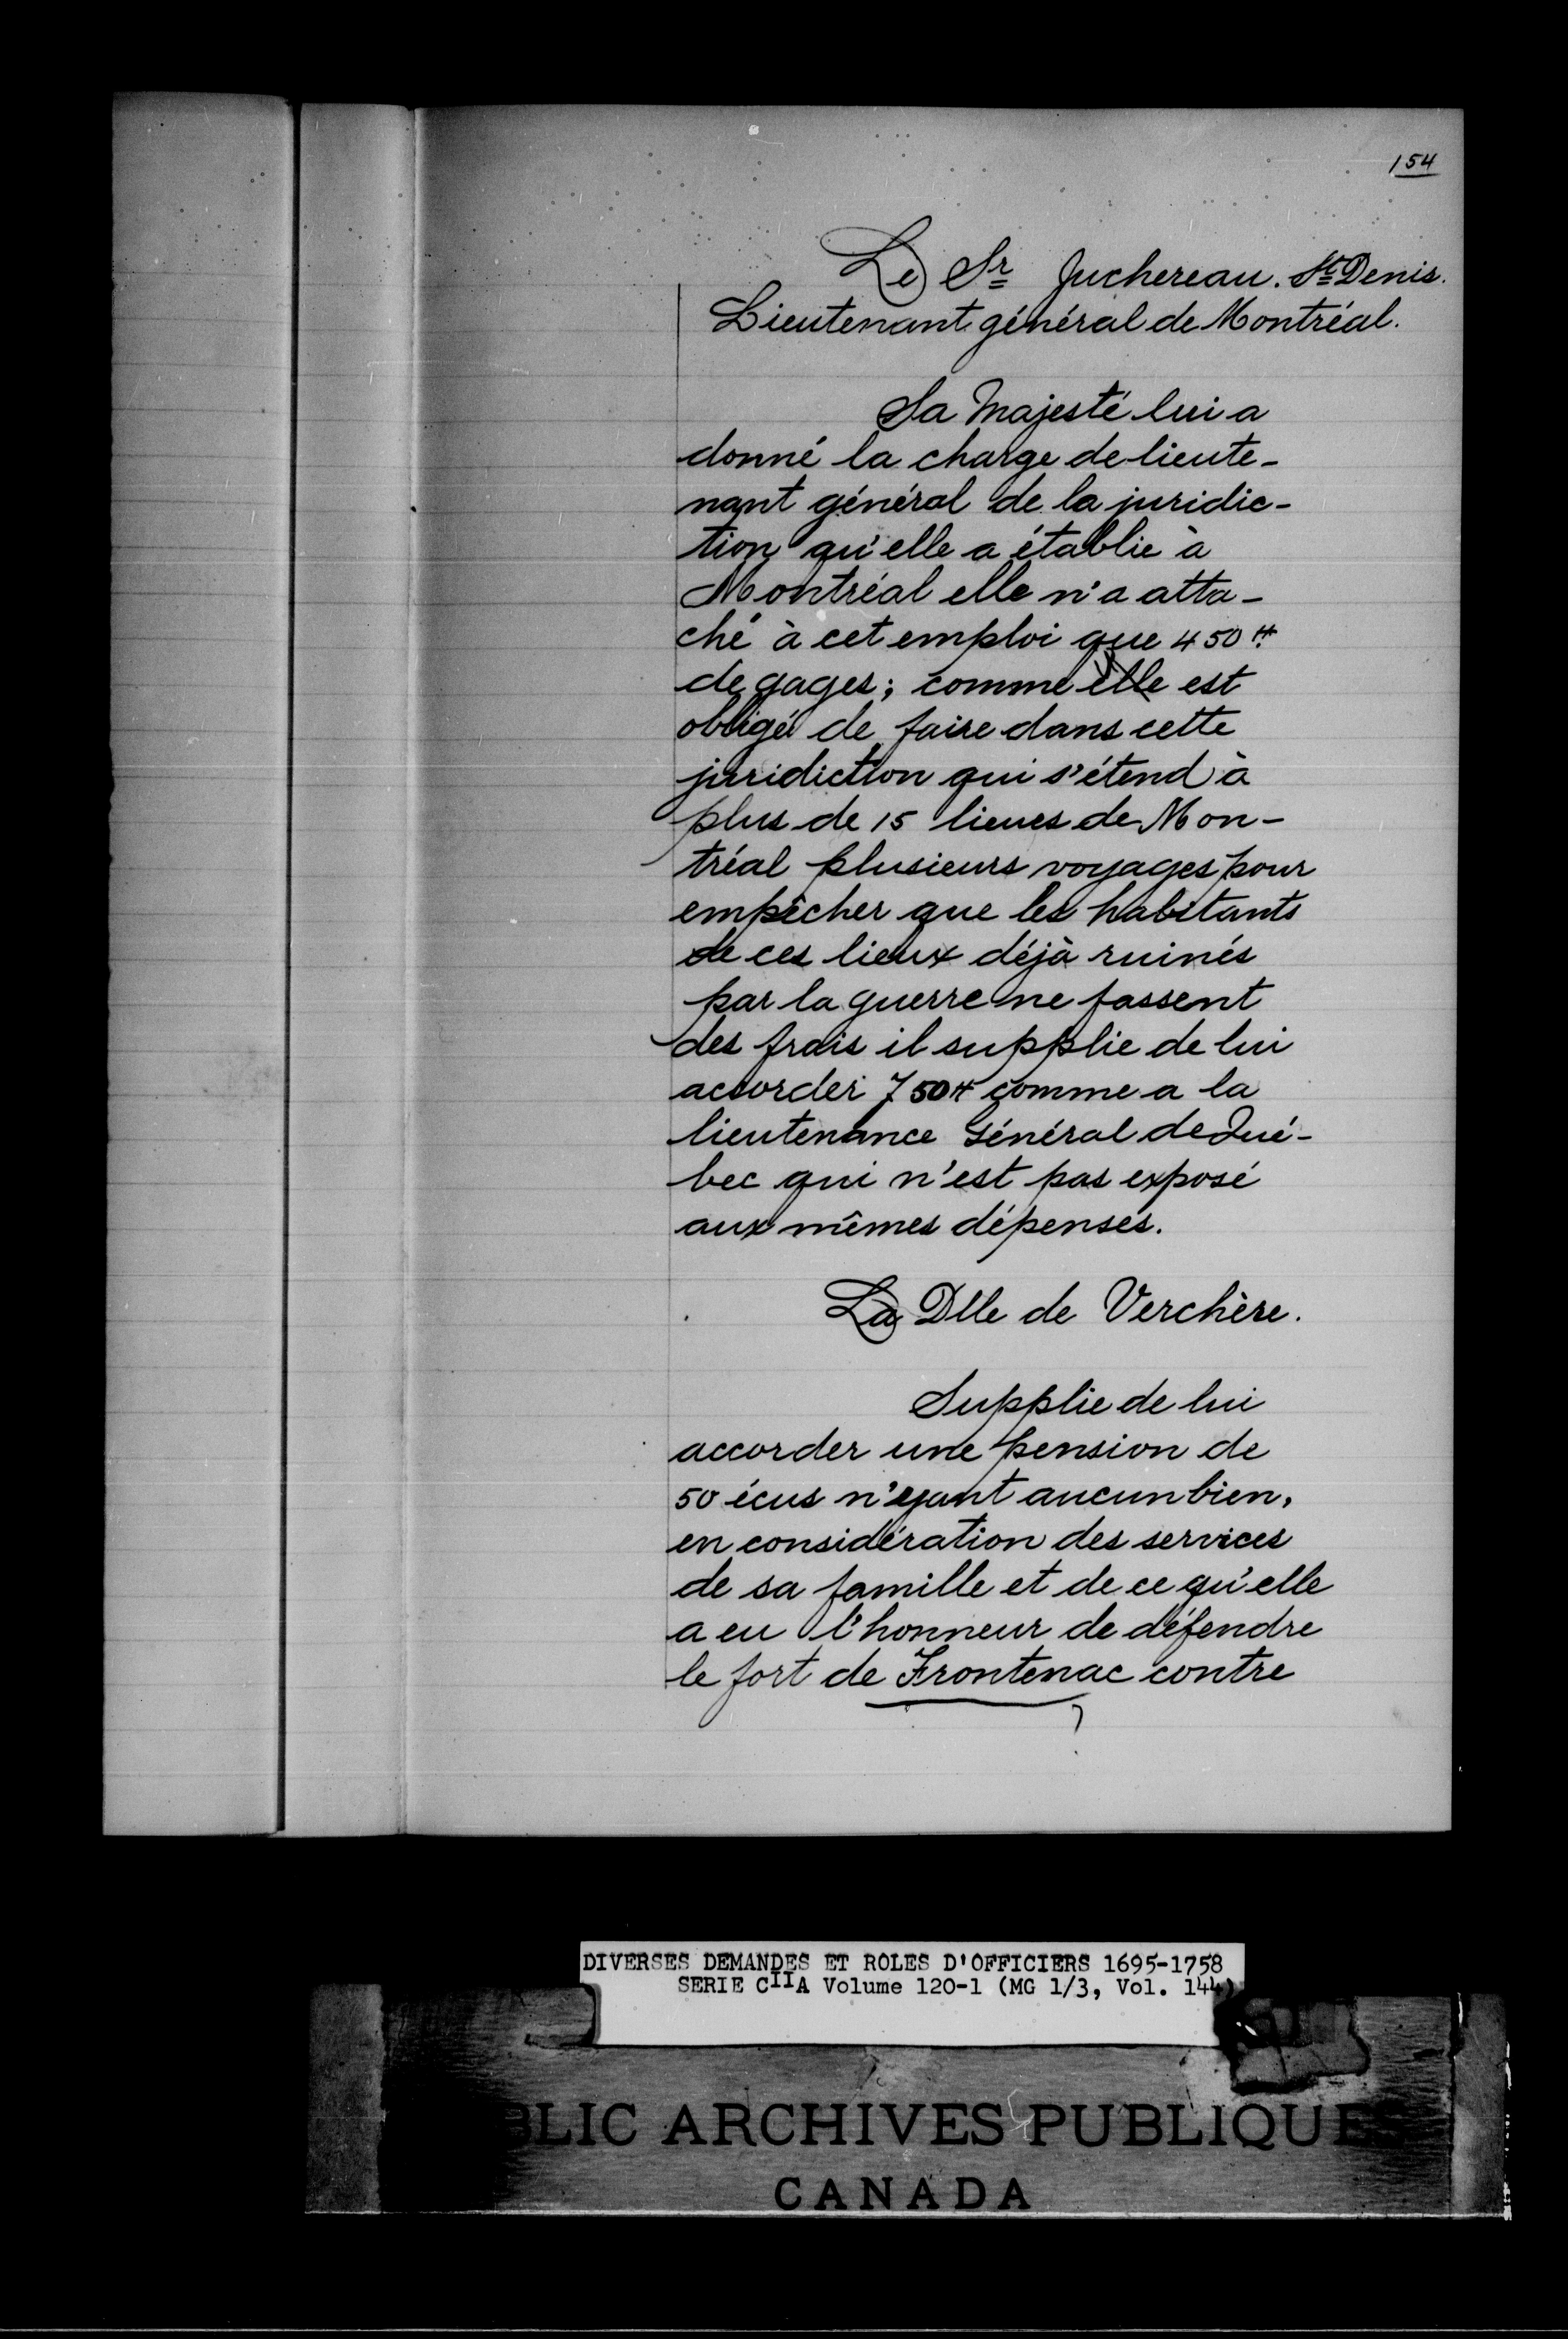 154
Le Sr Juchereau. St Denis.
Lieutenant général de Montréal.
Sa Majesté lui a
donné la charge de lieute-
nant général de la juridic-
tion qu'elle a établie à
Montréal elle n'a atta-
ché à cet emploi que 450 ₶
de gages; comme il est
obligé de faire dans cette
juridiction qui s'étend à
plus de 15 lieues de Mon-
tréal plusieurs voyages pour
empêcher que les habitants
de ces lieux déjà ruinés
par la guerre ne fassent
des frais il supplie de lui
accorder 750 ₶ comme a la
lieutenance Général de Qué-
bec qui n'est pas exposé
aux mêmes dépenses.
La Dlle de Verchère.
Supplie de lui
accorder une pension de
50 écus n'ayant aucun bien,
en considération des services
de sa famille et de ce qu'elle
a eu l'honneur de défendre
le fort de Frontenac contre
DIVERSES DEMANDES ET ROLES D'OFFICIERS 1695-1758
SERIE CIIA Volume 120-1 (MG 1/3, Vol. 144)
BLIC ARCHIVES PUBLIQUES
CANADA